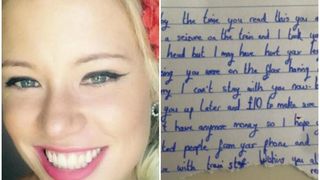 by the time you read this you
a seizure on the train and I
head but I may have hurt your
you were on the floor having
I can't stay with you now
you up later and £10 to make sure
't have anymore money so I hope
people from your phone and
with train staff. Wishing you al